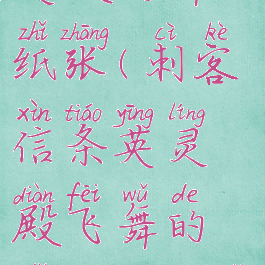 zhǐ zhāng cì kè
纸张(刺客
xìn tiáo yīng líng
信条英灵
diàn fēi wǔ de
殿飞舞的